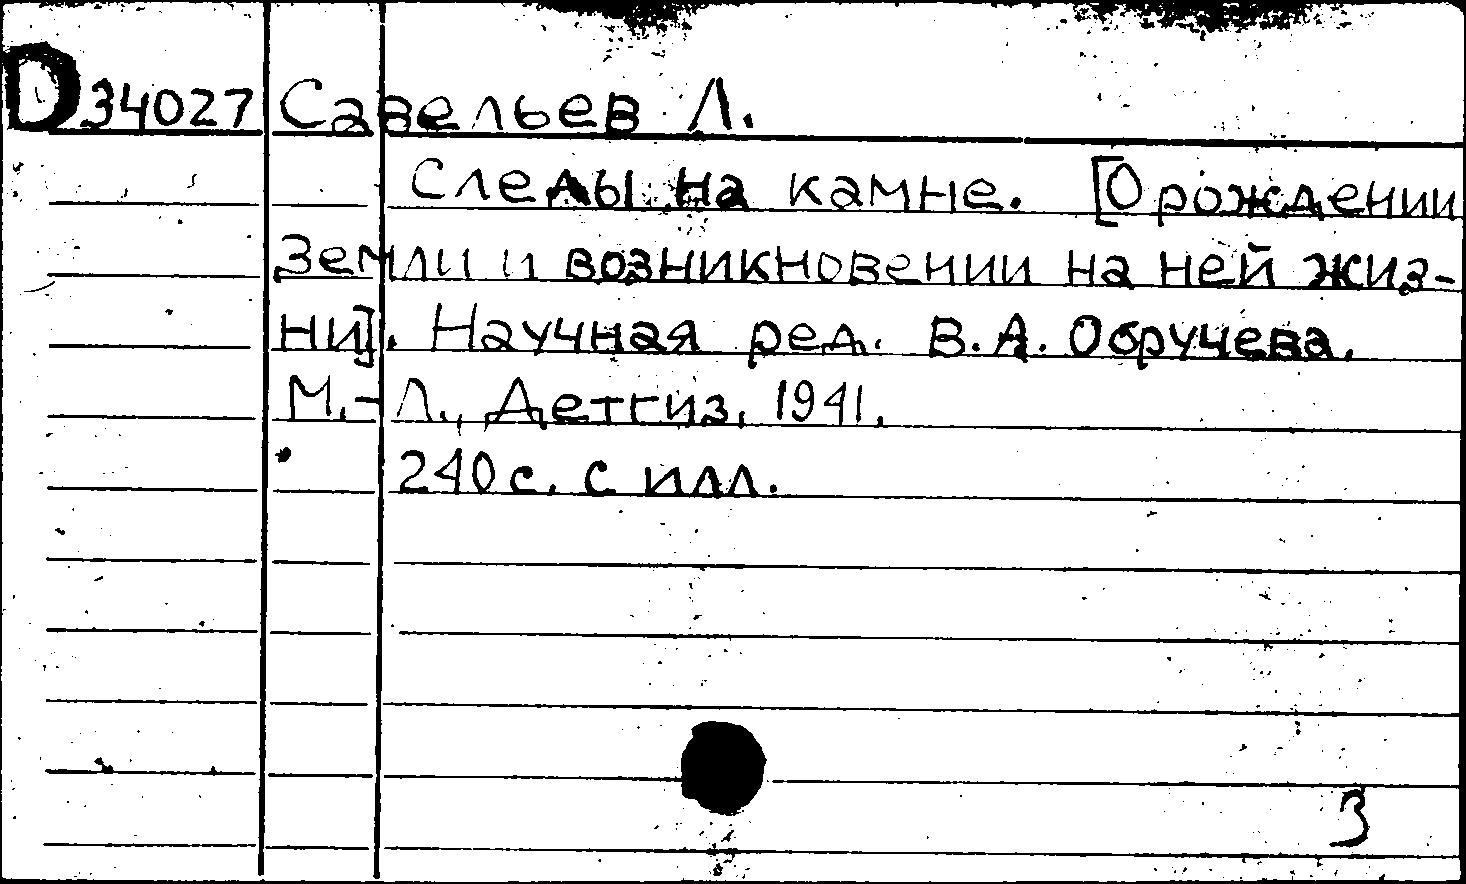 D34027 Савельев Л.
Следы на камне. [О рождении
Земли и возникновении на ней жиз-
ни]. Научная ред. В.А. Обручева.
М.-Л., Детгиз, 1941.
240 с. с илл.
3